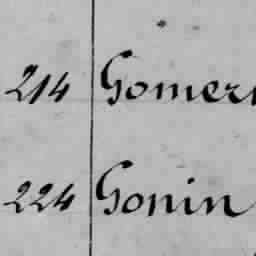 214 Gomer
224 Gonin